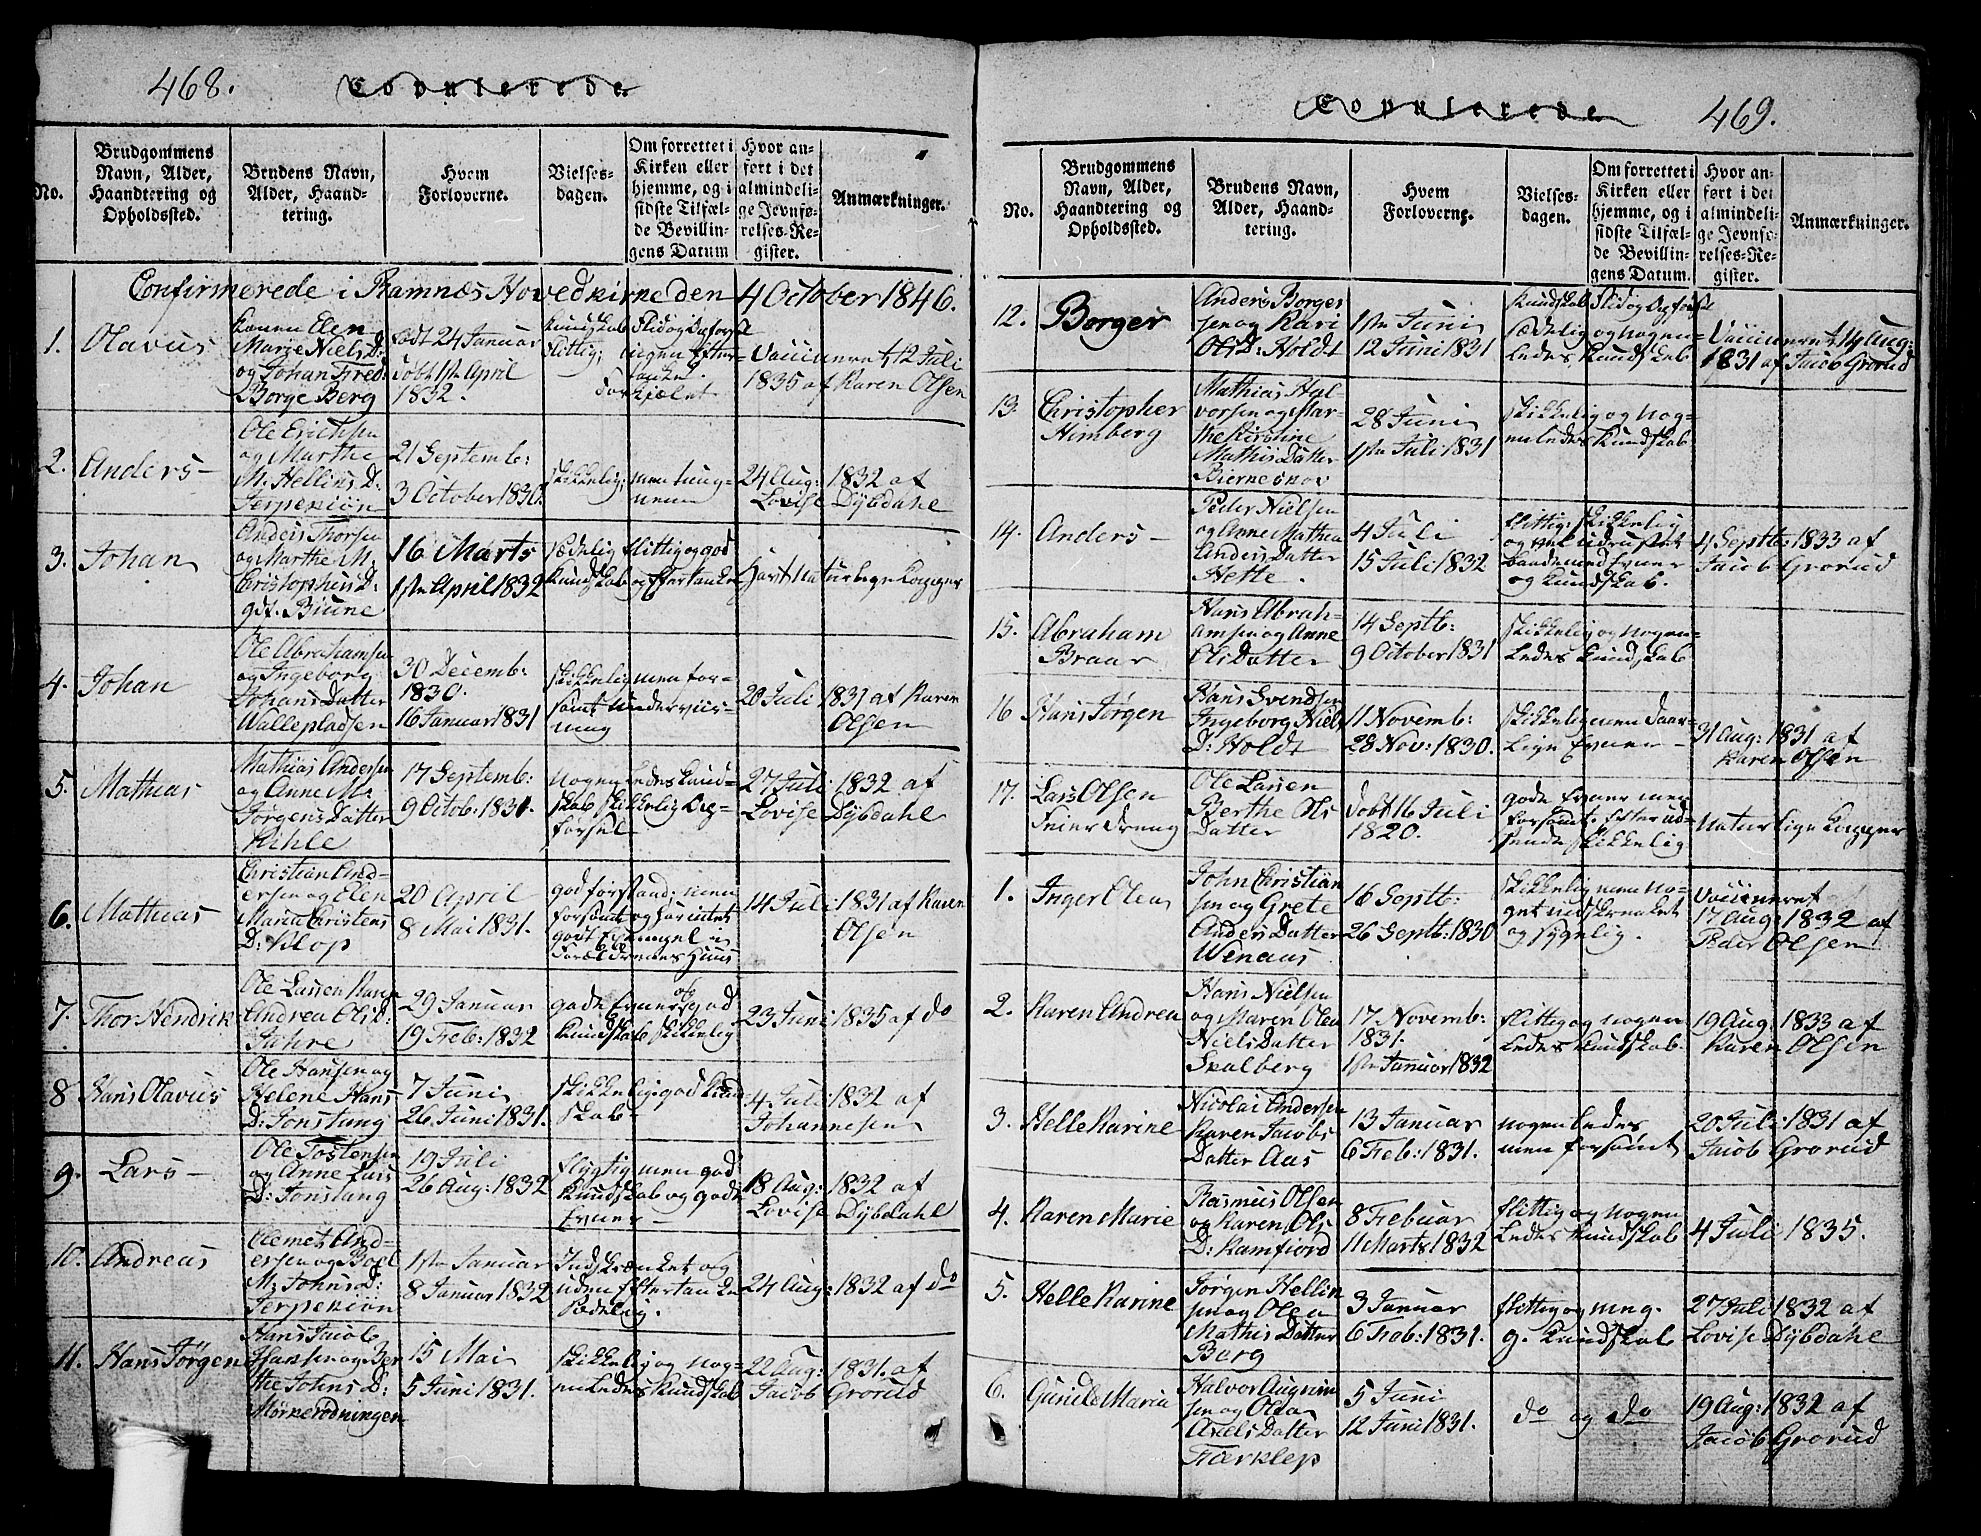 468.
Copulerede.
No.
Brudgommens
Navn, Alder,
Haandtering og
Opholdssted.
Brudens Navn,
Alder, Haand-
tering.
Hvem
Forloverne.
Vielses-
dagen.
Om forrettet i
Kirken eller
hjemme, og i
sidste Tilfæl-
de Bevillin-
gens Datum
Hvor an-
ført i det
almindeli-
ge Jevnfø-
relses-Re-
gister.
Anmærkninger.
Confirmerede i Ramnæs Hovedkirke den 4 October 1846.
1. Olavus
Elen
Marie Niels D:
og Johan Fred:
Borge Berg
født 24 Januar
døbt 1ste April
1832.
Kundskab Flid og Opførsel
flittig; ingen Efter-
tanke.
Forkjælet
Vaccineret 12 Juli
1835 af Karen Olsen
2. Anders -
Ole Erichsen
og Marthe
M: Hellins D:
Serpekiøn
21 Septemb:
3 October 1830.
skikkelig; men tung-
nem
24 Aug: 1832 af
Lovise Dÿbdahl
3. Johan
Anders Thorsen
og Marthe M:
Christophers D:
gdt. Biune
16 Marts
1ste April 1832
sædelig flittig og god
Kundskab og Eftertanke
Havt naturlige Kopper
4. Johan
Ole Abrahamsen
og Ingeborg
Johans Datter
Wallepladsen
30 Decemb:
1830.
16 Januar 1831
skikkelig men for-
sømt underviis-
ning
20 Juli 1831 af Karen
Olsen
5. Mathias
Mathias Andersen
og Anne M:
Jørgens Datter
Kihle
17 Septemb:
9 Octob: 1831.
nogenledes Kund-
skab skikkelig Op-
førsel
27 Juli 1832 af
Lovise Dÿbdahl
6. Mathias
Christian And-
ersen og Elen
Maria Christens
D: Klop
20 April
8 Mai 1831.
god forstand; men
forsømt og har intet
godt Exempel i
Forældrenes Huus
14 Juli 1831 af Karen
Olsen
7. Thor Hendrik
Ole Larsen Karen
Andrea Olis D:
Jahre
29 Januar
19 Feb: 1832
gode Evner og god
Kundskab skikkelig
23 Juni 1835 af do
8 Hans Olavus
Ole Hansen og
Helene Hans
D: Fonstang
7 Juni
26 Juni 1831.
skikkelig god Kund
skab -
4 Juli 1832 af
Johannesen
9. Lars -
Ole Tostensen
og Anne Lars
D: Fonstang
19 Juli
26 Aug: 1832
flygtig men god
Kundskab og gode
Evner -
18 Aug: 1832 af
Lovise Dÿbdahl
10. Andreas
Clemet And-
ersen og Boel
M: Johns D:
Serpekiøn
1ste Januar
8 Januar 1832
Indskrænket og
uden Eftertanke
sædelig.
24 Aug: 1832 af do
11. Hans Jørgen
Hans Jacob
Hansen og Ber
the Johns D:
Mørkerødningen
15 Mai
5 Juni 1831.
skikkelig og nog-
enledes Kundskab
22 Aug: 1831. af
Jacob Grorud
Copulerede.
469.
No.
Brudgommens
Navn, Alder,
Haandtering og
Opholdssted.
Brudens Navn,
Alder, Haand-
tering.
Hvem
Forloverne.
Vielses-
dagen.
Om forrettet i
Kirken eller
hjemme, og i
sidste Tilfæl-
de Bevillin-
gens Datum.
Hvor an-
ført i det
almindeli-
ge Jevnfø-
relses-Re-
gister.
Anmærkninger.
12. Borger
Anders Borger
sen og Kari
Olis D: Holdt
1ste Juni
12 Juni 1831
Kundskab Flid og Opførsel
sædelig og nogen-
ledes Kundskab
Vaccineret 14 Aug:
1831 af Jacob Grorud
13. Christopher
Himberg
Mathias Hal-
vorsen og Mar-
the Kirstine
Mathis Datter
Bierneskov
28 Juni
1ste Juli 1831
skikkelig og nog-
enledes Kundskab
14. Anders -
Peder Nielsen
og Anne Mathea
Anders Datter
Hette.
4 Juli
15 Juli 1832
flittig; skikkelig
og vel udrustet
baade med Evner
og Kundskab.
4 Septb: 1833 af
Jacob Grorud
15. Abraham
Braar
Hans Abrah-
amsen og Anne
Olis Datter
14 Septb:
9 October 1831
skikkelig og nogen-
ledes Kundskab
16 Hans Jørgen
Hans Svendsen
Ingeborg Niels
D: Holdt
11 Novemb:
28 Nov: 1830.
skikkelig men daar-
lige Evner -
31 Aug: 1831 af
Karen Olsen
17. Lars Olsen
Feier Dreng
Ole Larsen
Berthe Ols
Datter
døbt 16 Juli
1820.
gode Evner men
forsømt. Efter ud-
seende skikkelig
Naturlige Kopper
1. Inger Olea
John Christian
sen og Grete
Anders Datter
Wenaas
16 Septb:
26 Septb: 1830
skikkelig men no-
get indskrænket
og sygelig.
Vaccineret
17 Aug: 1832 af
Peder Olsen
2. Karen Andrea
Hans Nielsen
og Maren Olea
Niels Datter
Skalberg
17 Novemb:
1831.
1ste Januar 1832
flittig og nogen
ledes Kundskab.
19 Aug: 1833 af
Karen Olsen
3. Helle Karine
Nicolai Andersen
Karen Jacobs
Datter Aas
13 Januar
6 Feb: 1831.
nogenledes
men forsømt
20 Juli 1831 af
Jacob Grorud
4. Karen Marie
Rasmus Olsen
og Karen Ols
D: Kamfiord
8 Febuar
11 Marts 1832
flittig og nogen
ledes Kundskab
4 Juli 1835.
5. Helle Karine
Jørgen Hellin
sen og Olea
Mathis Datter
Borg
3 Januar
6 Feb: 1831.
flittig og nog.
g. Kundskab
27 Juli 1832 af
Lovise Dÿbdahl
6. Gunild Maria
Halvor Augrim
sen og Olea
Axels Datter
Færklep
5 Juni
12 Juni 1831.
do og do
19 Aug: 1832 af
Jacob Grorud